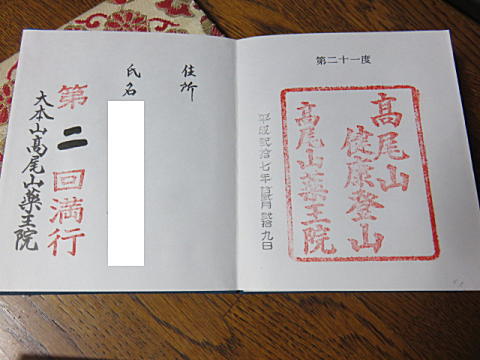 第二十一度
髙尾山
健康登山
髙尾山薬王院
平成貳拾七年拾貳月貳拾九日
住所
氏名
第二回満行
大本山髙尾山薬王院